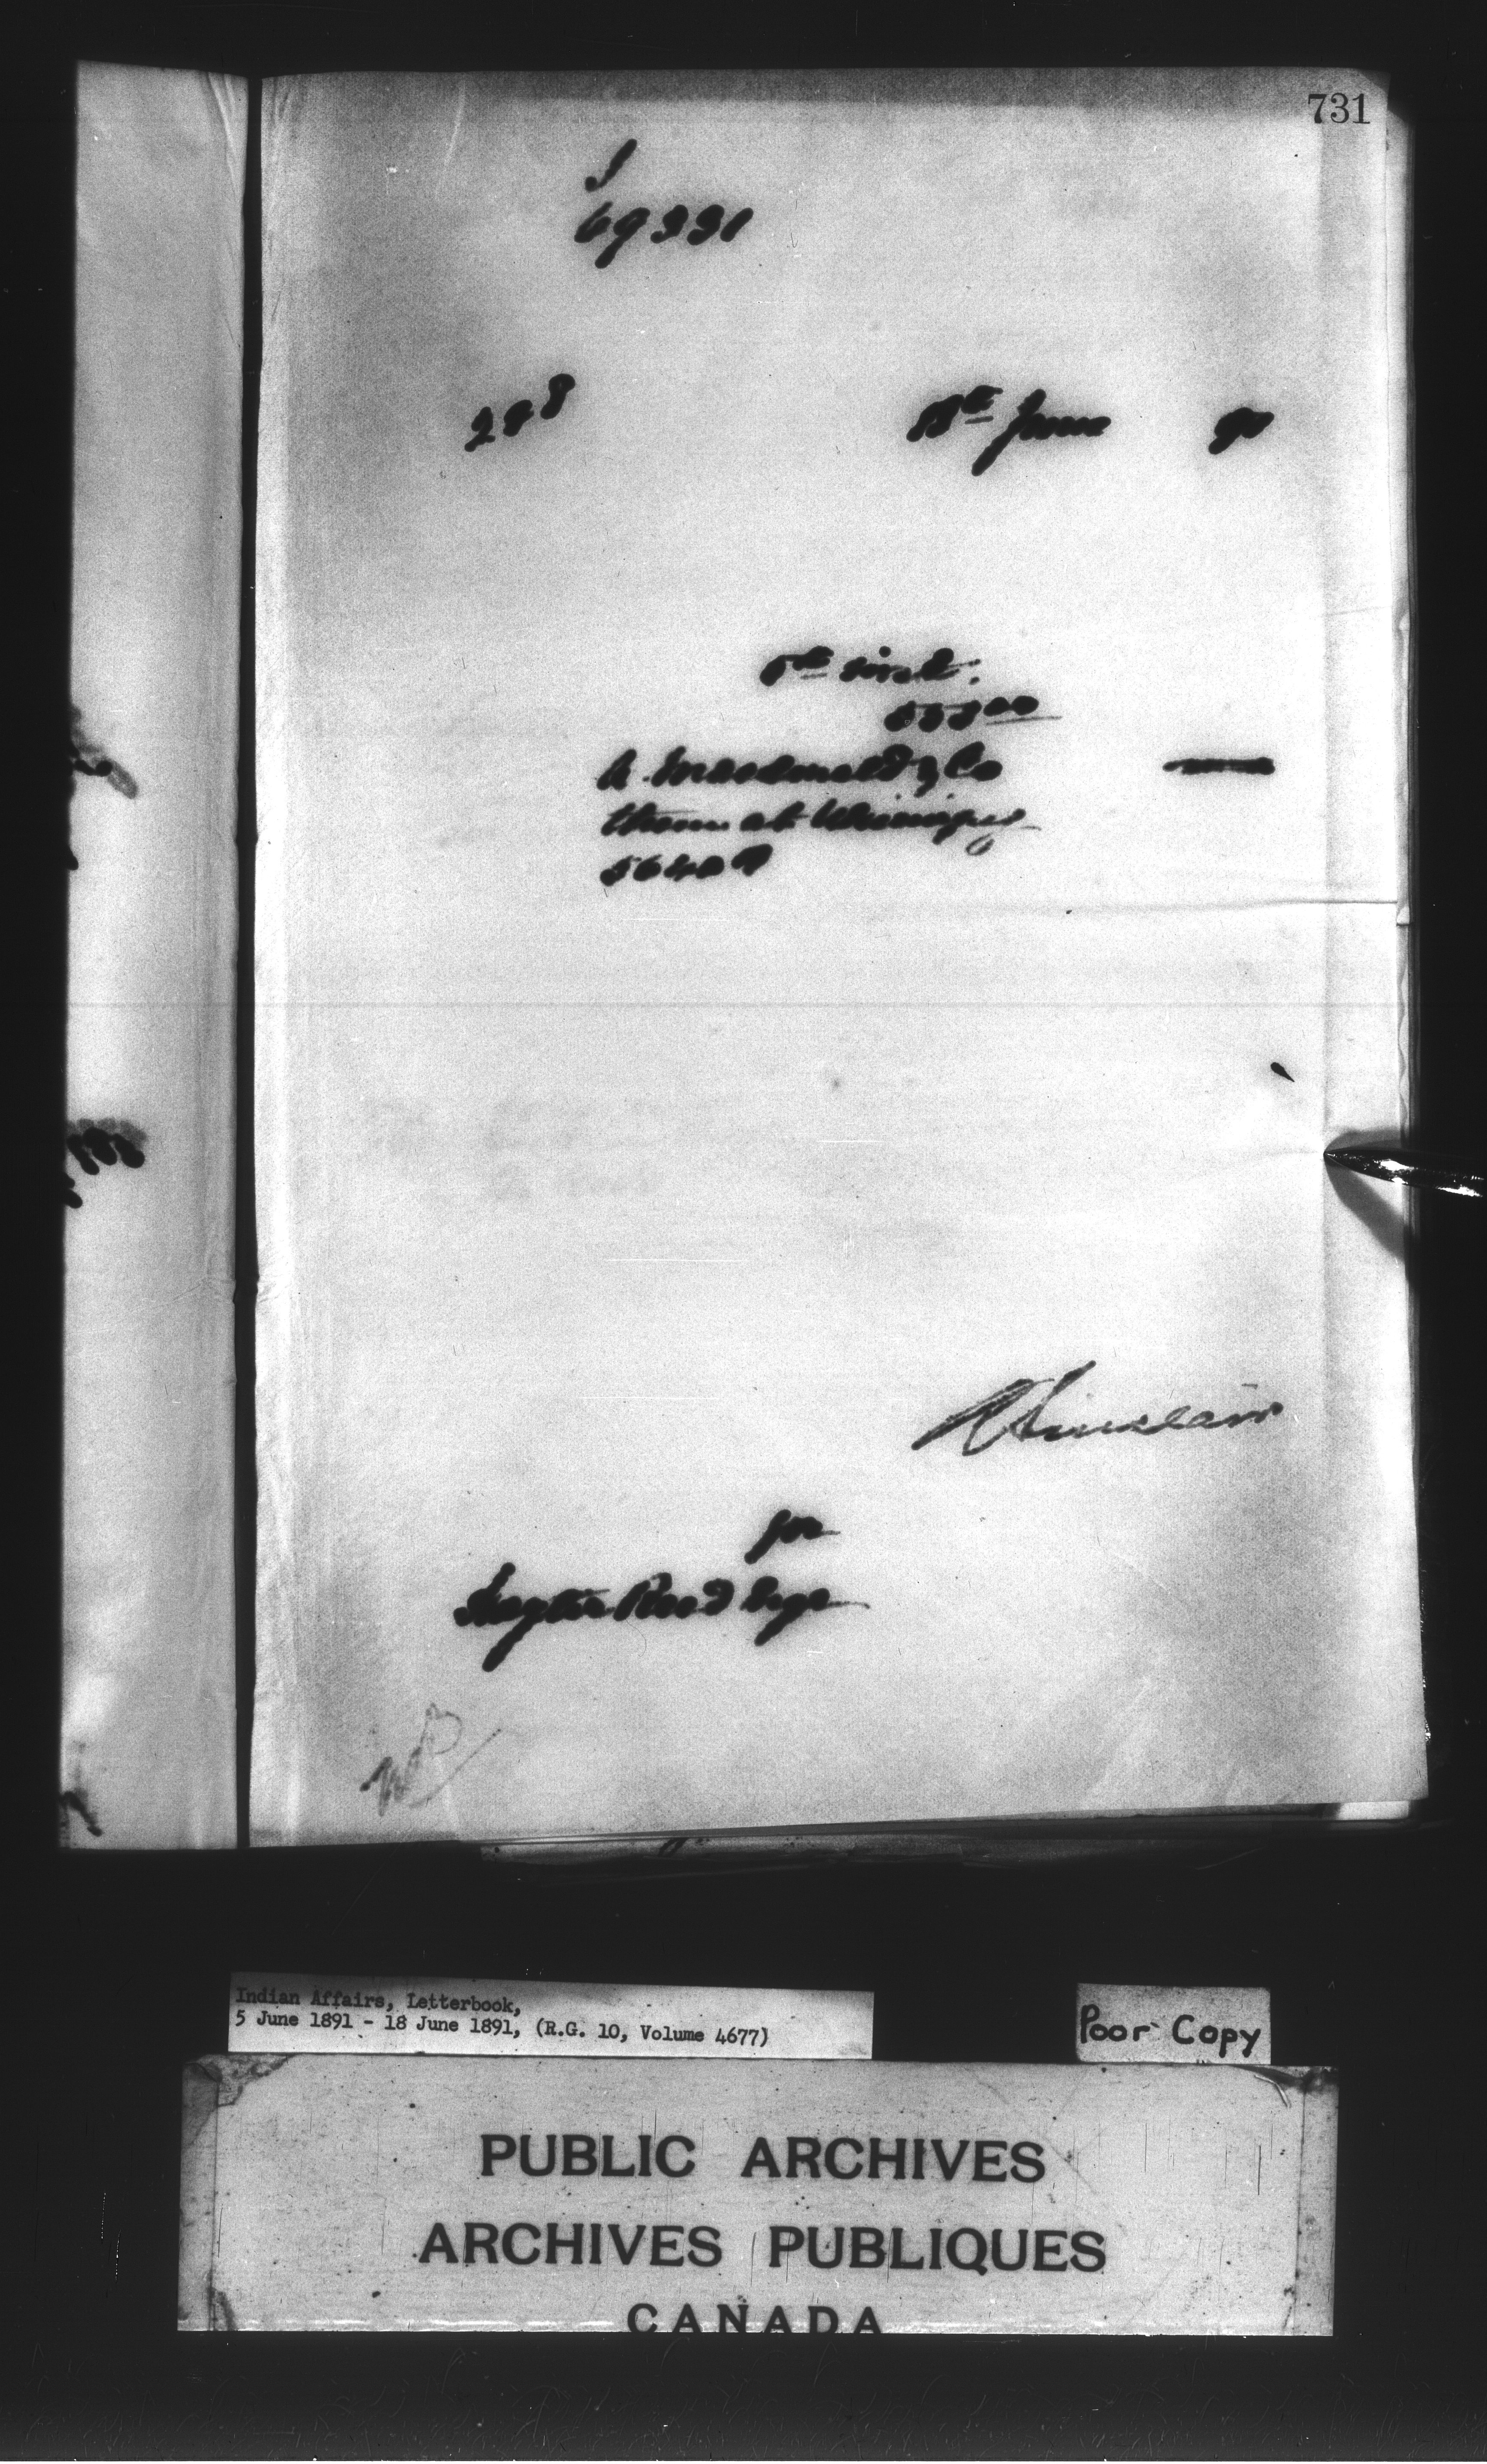 731
69331
298
18th June 91
8th inst.
A. Macdonald & Co
them at Winnipeg
56409
R Sinclair
for
Hayter Reed Esqr
Indian Affairs, Letterbook,
5 June 1891 - 18 June 1891, (R.G. 10, Volume 4677)
Poor Copy
PUBLIC ARCHIVES
ARCHIVES PUBLIQUES
CANADA